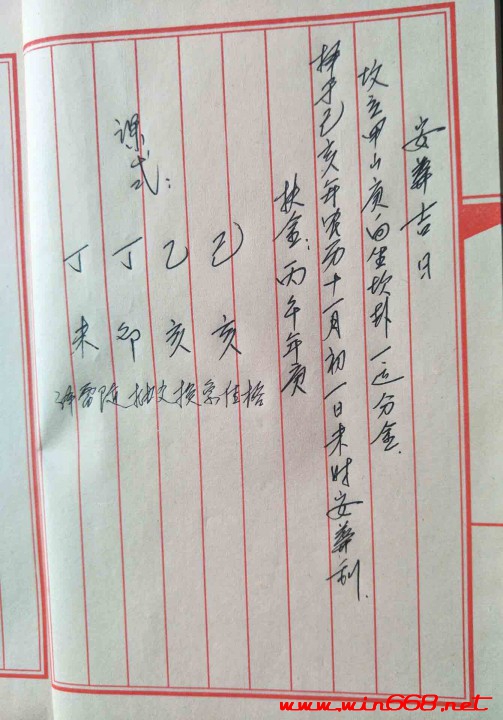 安葬吉日
坟立甲山庚向坐坎卦一运分金
择于己亥年农历十一月初一日未时安葬利.
扶金:丙午年庚
课式:
己 乙 丁 丁
亥 亥 卯 未
泽雷随
www.win668.net